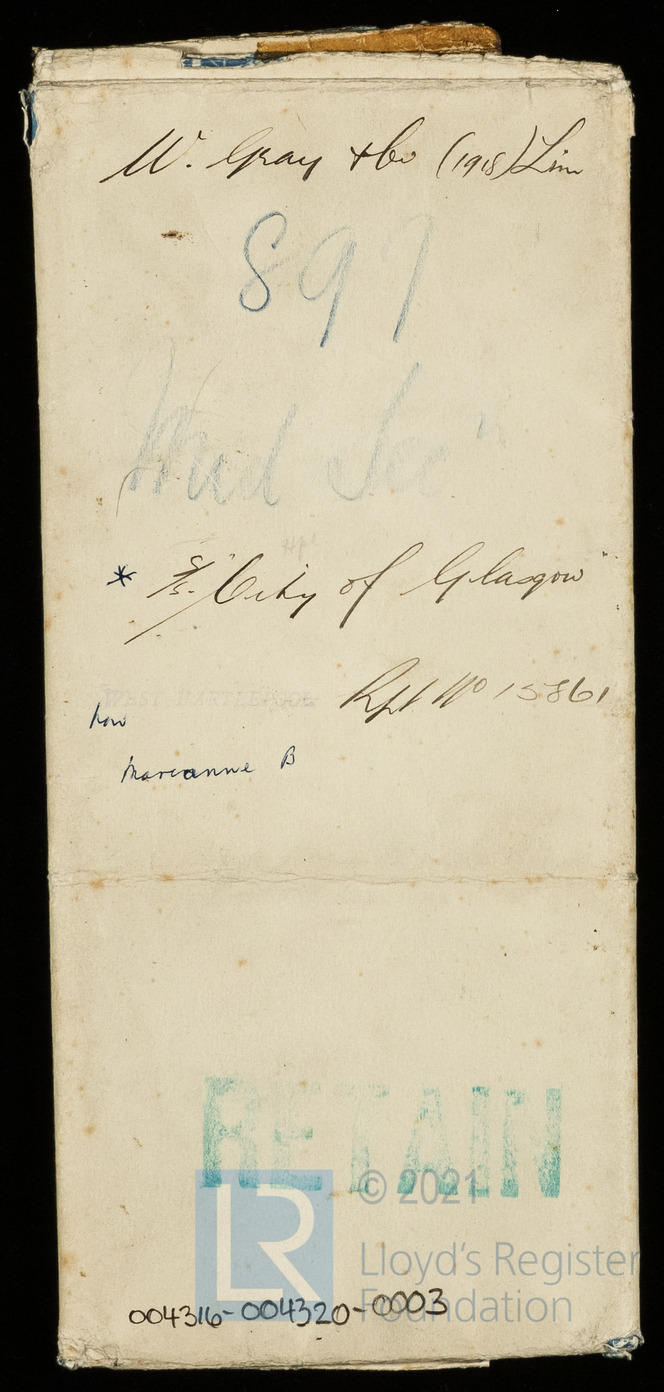 W. Gray & Co (1918) Lim
897
Mid Sec"
Hpl
* S/S. "City of Glasgow"
Rpt No 15861
WEST HARTLEPOOL
now
Marianne B
RETAIN
LR
© 2021
Lloyd's Register
Foundation
004316-004320-0003